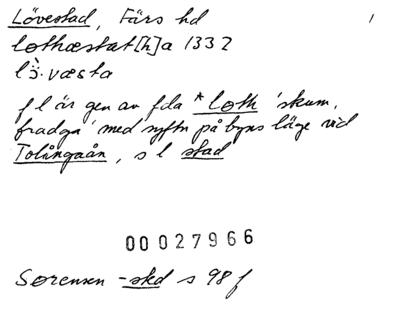 Lövestad, Färs hd
lothæstat[h]a 1332
lö̀.væsta
f l är gen av fda *loth 'skum,
fradga' med syftn på byns läge vid
Tolångaån, s l stad
00027966
Sørensen -sted s 98 f